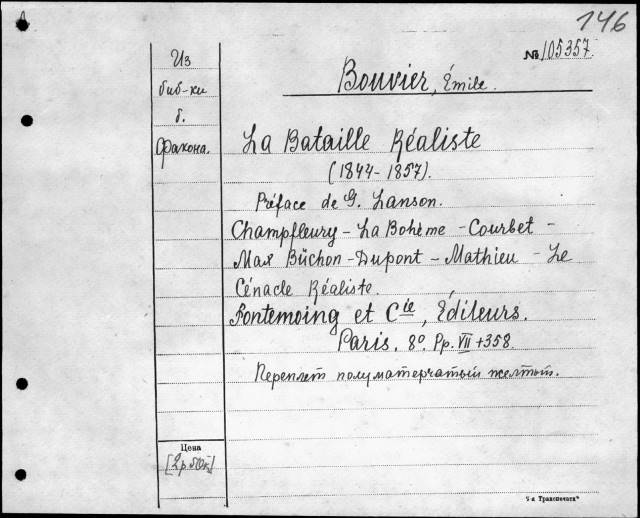 146
№ 105357.
Из
биб-ки
б.
Bouvier, Émile.
La Bataille Réaliste
(1844-1857).
Préface de G. Lanson.
Champfleury - La Bohème - Courbet -
Max Büchon - Dupont - Mathieu - Le
Cénacle Réaliste.
Fontemoing et Cie, Éditeurs.
Paris. 8º. Pp. VII + 358.
Переплет полуматерчатый желтый.
Цена
[2р. 50к]